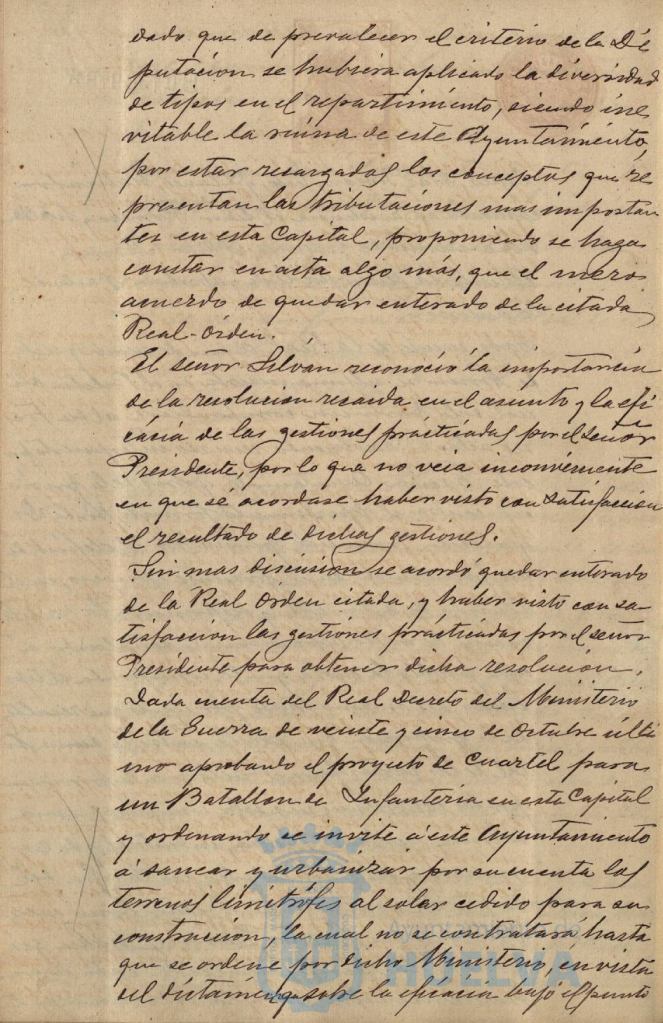 dado que de prevalecer el criterio de la Di
putacion se hubiera aplicado la diversidad
de tipos en el repartimiento, siendo ine
vitable la ruina de este Ayuntamiento,
por estar recargados los conceptos que re
presentan las tributaciones mas importan
tes en esta Capital, proponiendo se haga
constar en acta algo más, que el mero
acuerdo de quedar enterado de la citada
Real-órden.
El señor Silván reconoció la importancia
de la resolucion recaida en el asunto y la efi
cácia de las gestiones prácticadas por el señor
Presidente, por lo que no veia inconveniente
en que se acordase haber visto con satisfaccion
el resultado de dichas gestiones.
Sin mas discusion se acordó quedar enterado
de la Real órden citada, y haber visto con sa-
tisfaccion las gestiones prácticadas por el señor
Presidente para obtener dicha resolución.
Dada cuenta del Real Decreto del Ministerio
de la Guerra de veinte y cinco de Octubre últi
mo aprobando el proyecto de Cuartel para
un Batallon de Infanteria en esta Capital
y ordenando se invite á este Ayuntamiento
á sanear y urbanizar por su cuenta los
terrenos limítrofes al solar cedido para su
construccion, la cual no se contratará hasta
que se ordene por dicho Ministerio, en vista
del dictámen que sobre la eficácia bajo el punto
HUELVA